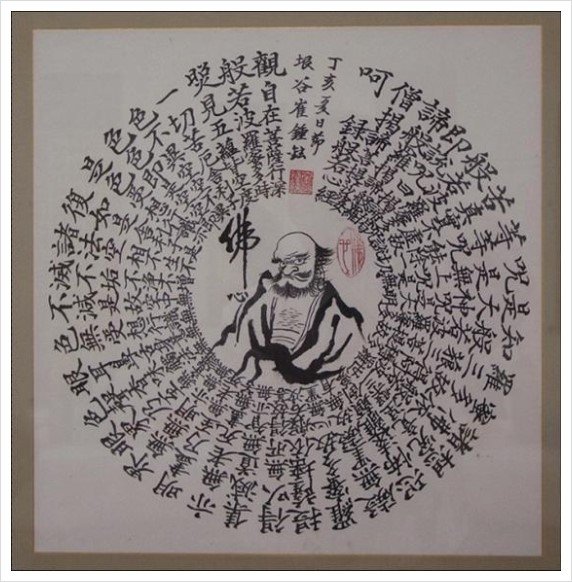 觀自在菩薩行深
般若波羅蜜多時
照見五蘊皆空度
一切苦厄舍利子
色不異空空不異
色色即是空空即
是色受想行識亦
復如是舍利子是
諸法空相不生不
滅不垢不淨不增
不減是故空中無
色無受想行識無
眼耳鼻舌身意無
色聲香味觸法無
眼界乃至無意識
界無無明亦無無
明盡乃至無老死
亦無老死盡無苦
集滅道無智亦無
得以無所得故菩
提薩埵依般若波
羅蜜多故心無罣
礙無罣礙故無有
恐怖遠離顛倒夢
想究竟涅槃三世
諸佛依般若波羅
蜜多故得阿耨多
羅三藐三菩提故
知般若波羅蜜多
是大神呪是大明
呪是無上呪是無
等等呪能除一切
苦真實不虛故說
般若波羅蜜多呪
即說呪曰揭諦揭
諦波羅揭諦波羅
僧揭諦菩提
呵
錄般若心經
丁亥夏日節
垠谷崔鍾
佛心